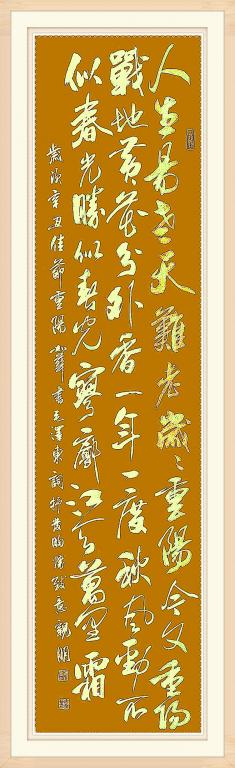 人生易老天難老歲々重陽今又重陽
戰地黃花分外香一年一度秋風勁不
似春光勝似春光寥廓江天萬里霜
歲次辛丑佳節重陽 書毛澤東詞抒發胸懷致意親朋